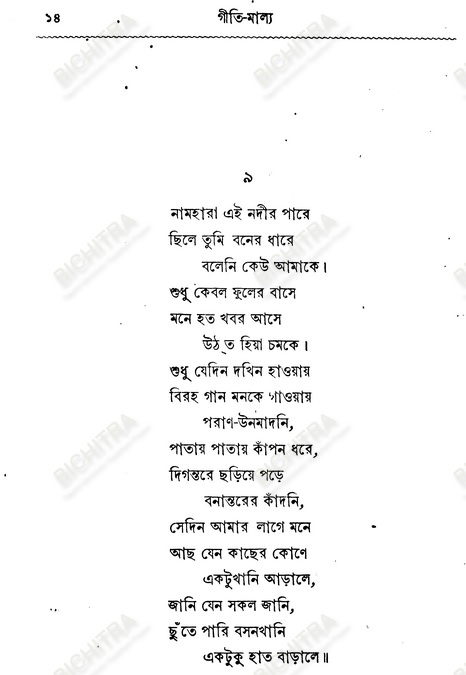 ১৪ গীতি-মাল্য
৯
নামহারা এই নদীর পারে
ছিলে তুমি বনের ধারে
বলেনি কেউ আমাকে।
শুধু কেবল ফুলের বাসে
মনে হত খবর আসে
উঠ্‌ত হিয়া চমকে।
শুধু যেদিন দখিন হাওয়ায়
বিরহ গান মনকে গাওয়ায়
পরাণ-উনমাদনি,
পাতায় পাতায় কাঁপন ধরে,
দিগন্তরে ছড়িয়ে পড়ে
বনান্তরের কাঁদনি,
সেদিন আমার লাগে মনে
আছ যেন কাছের কোণে
একটুখানি আড়ালে,
জানি যেন সকল জানি,
ছুঁতে পারি বসনখানি
একটুকু হাত বাড়ালে॥
BICHITRA
BICHITRA
BICHITRA
BICHITRA
BICHITRA
BICHITRA
BICHITRA
BICHITRA
BICHITRA